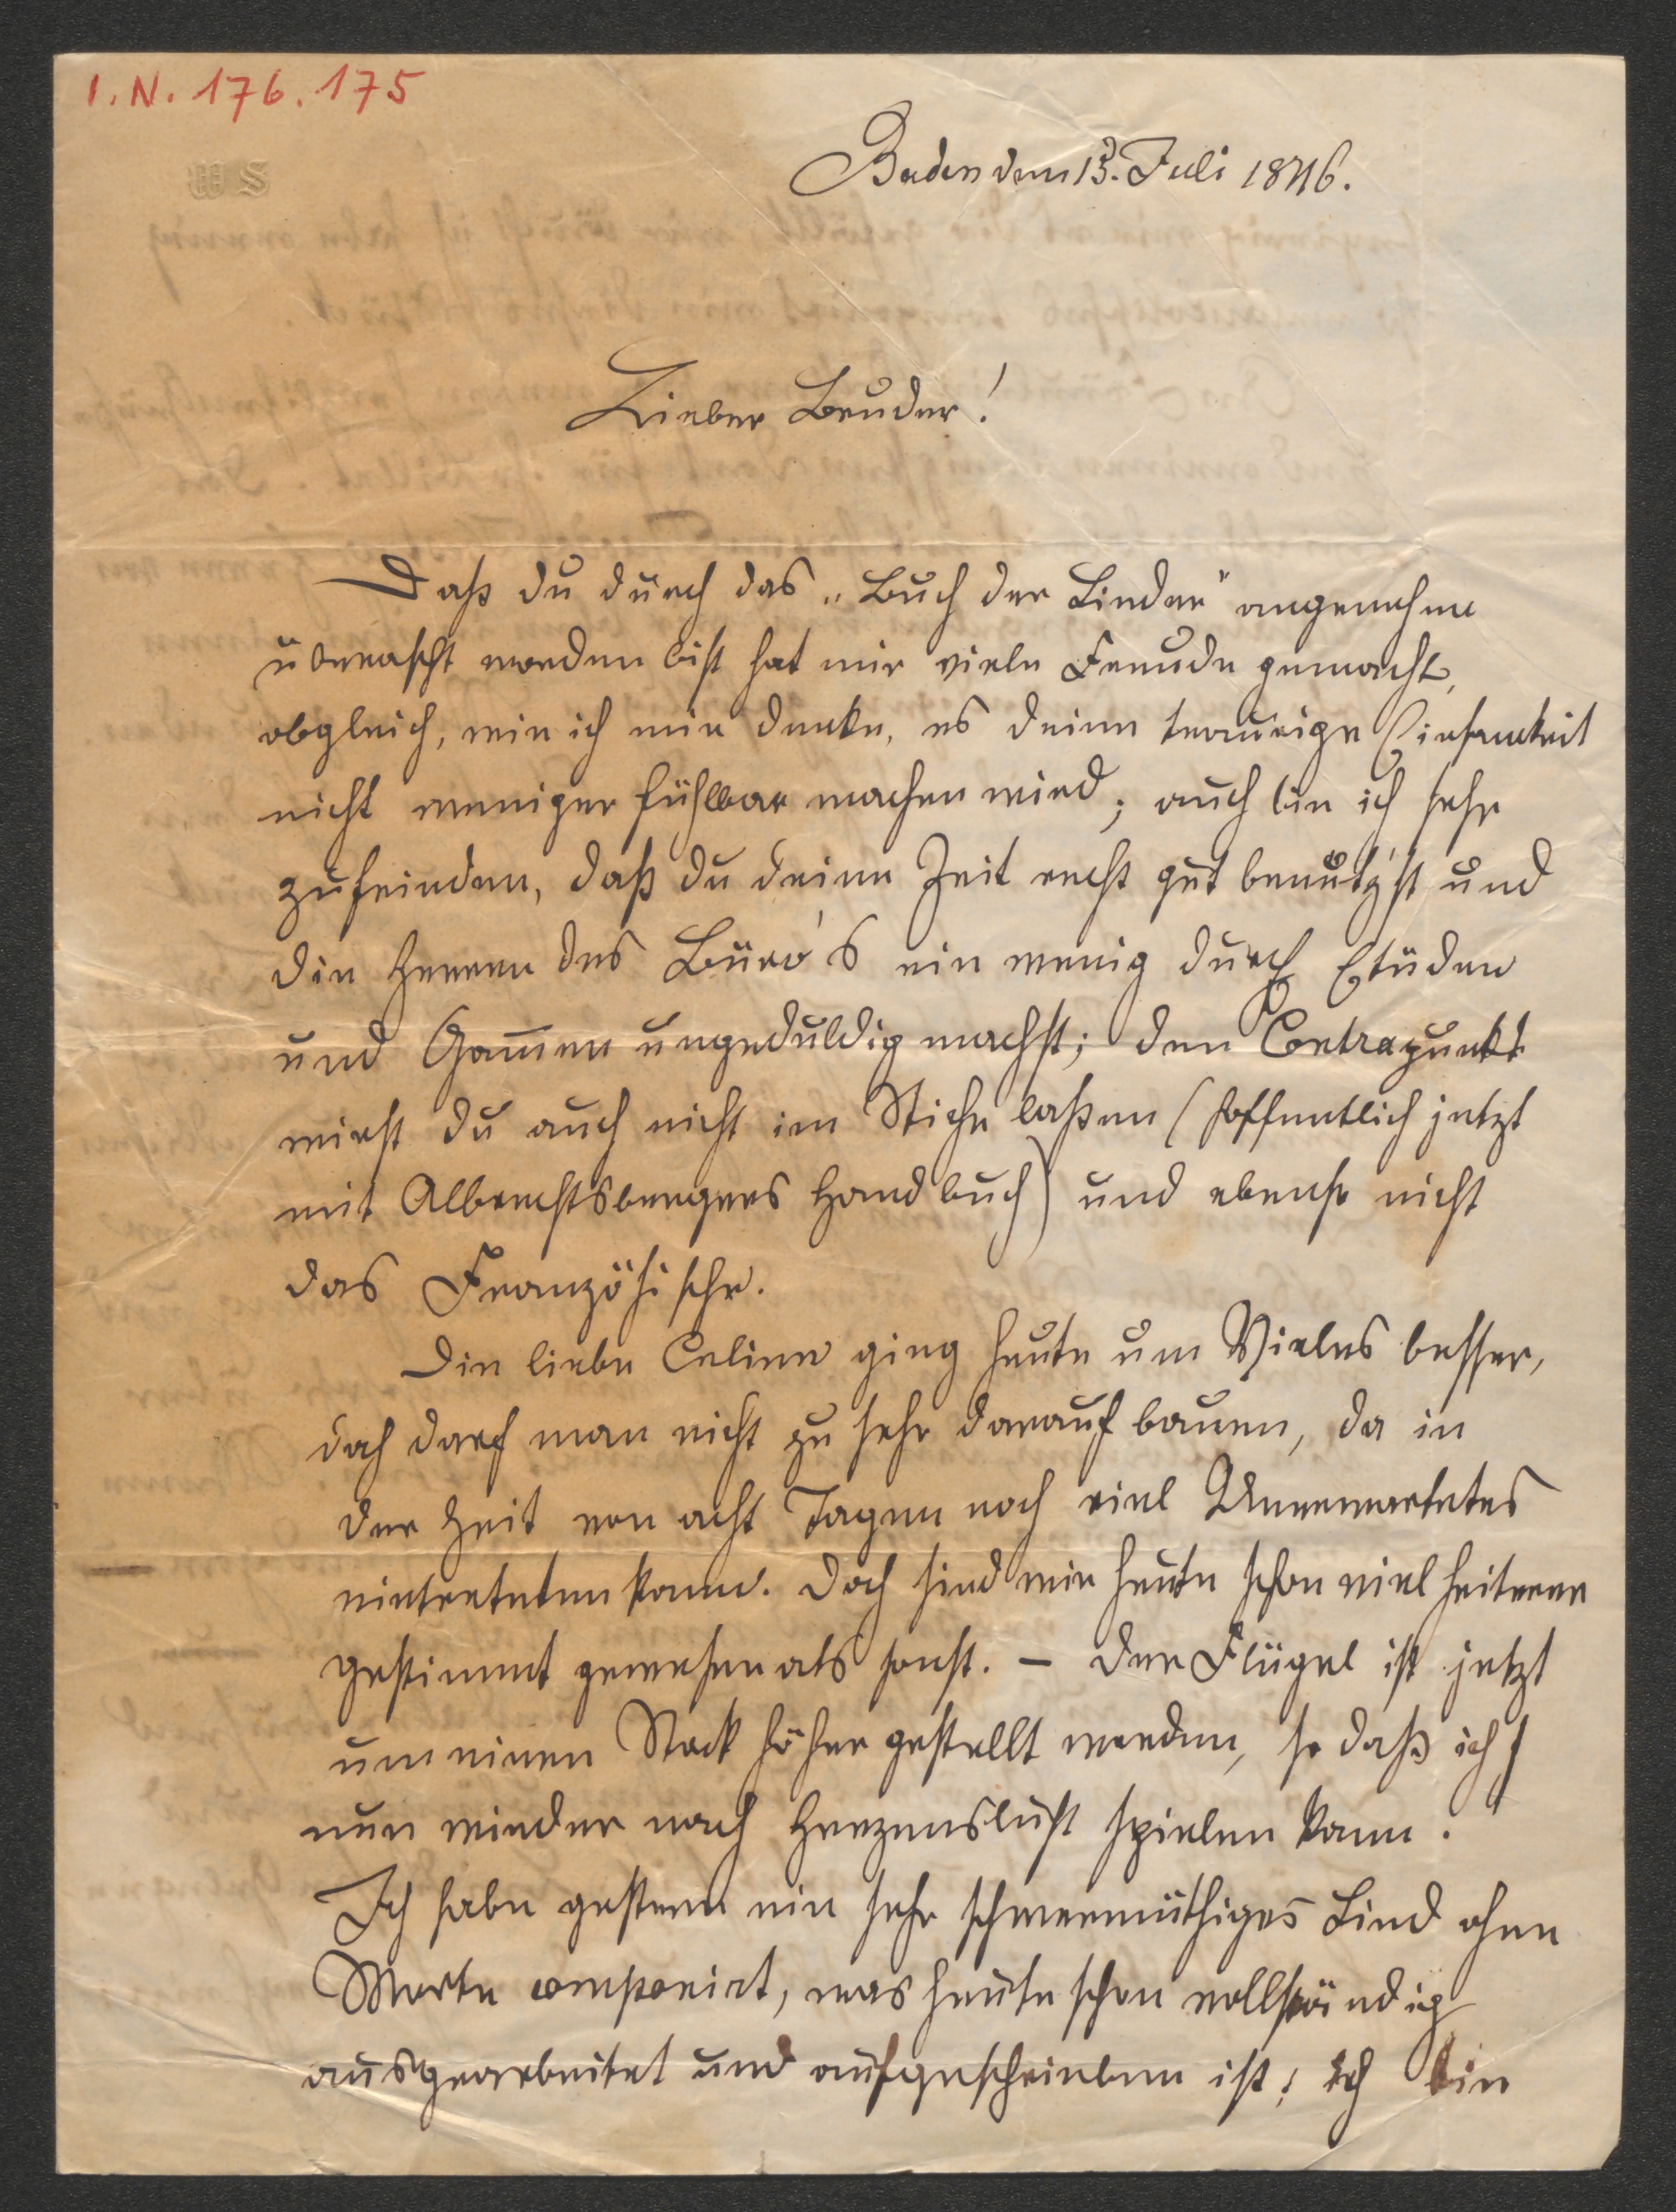 I.N. 176.175
WS
Baden den 13. Juli 1846.
Lieber Bruder!
Daß du durch das „Buch der Lieder" angenehm
überrascht worden bist hat mir viele Freude gemacht,
obgleich, wie ich mir denke, es deine traurige Einsamkeit
nicht weniger fühlbar machen wird; auch bin ich sehr
zufrieden, daß du deine Zeit recht gut benützst und
die Herren des Büro's ein wenig durch Etüden
und Gam̅en ungeduldig machst; den Contrapunkt
wirst du auch nicht im Stiche laßen (hoffentlich jetzt
mit Albrechtsbergers Handbuch) und ebenso nicht
das Französische.
Die liebe Celine ging heute um Vieles besser,
doch darf man nicht zu sehr darauf bauen, da in
der Zeit von acht Tagen noch viel Unerwartetes
eintreten kann. Doch sind wir heute schon viel heiterer
gestimmt gewesen als sonst. – Der Flügel ist jetzt
um einen Stock höher gestellt worden, so daß ich
nun wieder nach Herzenslust spielen kann!
Ich habe gestern ein sehr schwermüthiges Lied ohne
Worte componirt, was heute schon vollständig
ausgearbeitet und aufgeschrieben ist; ich bin